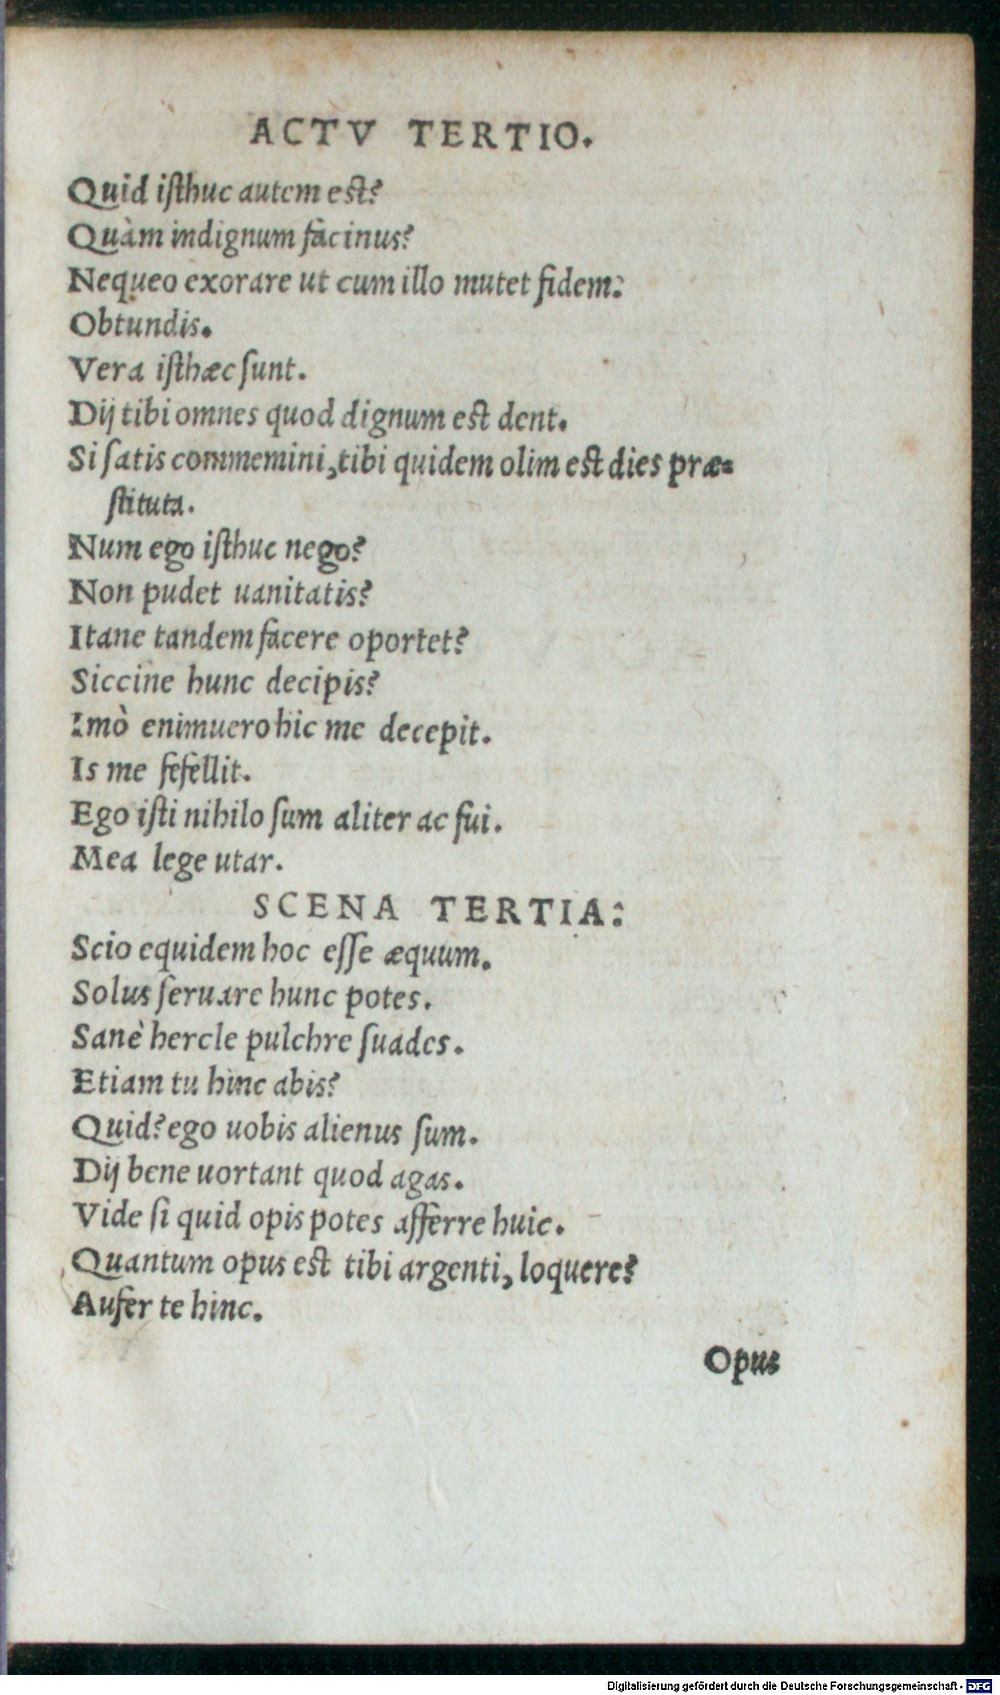 ACTV TERTIO.
Quid iſthuc autem eſt?
Quàm indignum facinus?
Nequeo exorare ut cum illo mutet fidem:
Obtundis.
Vera iſthæc ſunt.
Dij tibi omnes quod dignum eſt dent.
Si ſatis commemini, tibi quidem olim eſt dies præ-
ſtituta.
Num ego iſthuc nego?
Non pudet uanitatis?
Itane tandem facere oportet?
Siccine hunc decipis?
Imò enimuero hic me decepit.
Is me fefellit.
Ego iſti nihilo ſum aliter ac fui.
Mea lege utar.
SCENA TERTIA:
Scio equidem hoc eſſe æquum.
Solus ſeruare hunc potes.
Sanè hercle pulchre ſuades.
Etiam tu hinc abis?
Quid? ego uobis alienus ſum.
Dij bene uortant quod agas.
Vide ſi quid opis potes afferre huic.
Quantum opus eſt tibi argenti, loquere?
Aufer te hinc.
Opus
Digitalisierung gefördert durch die Deutsche Forschungsgemeinschaft - DFG